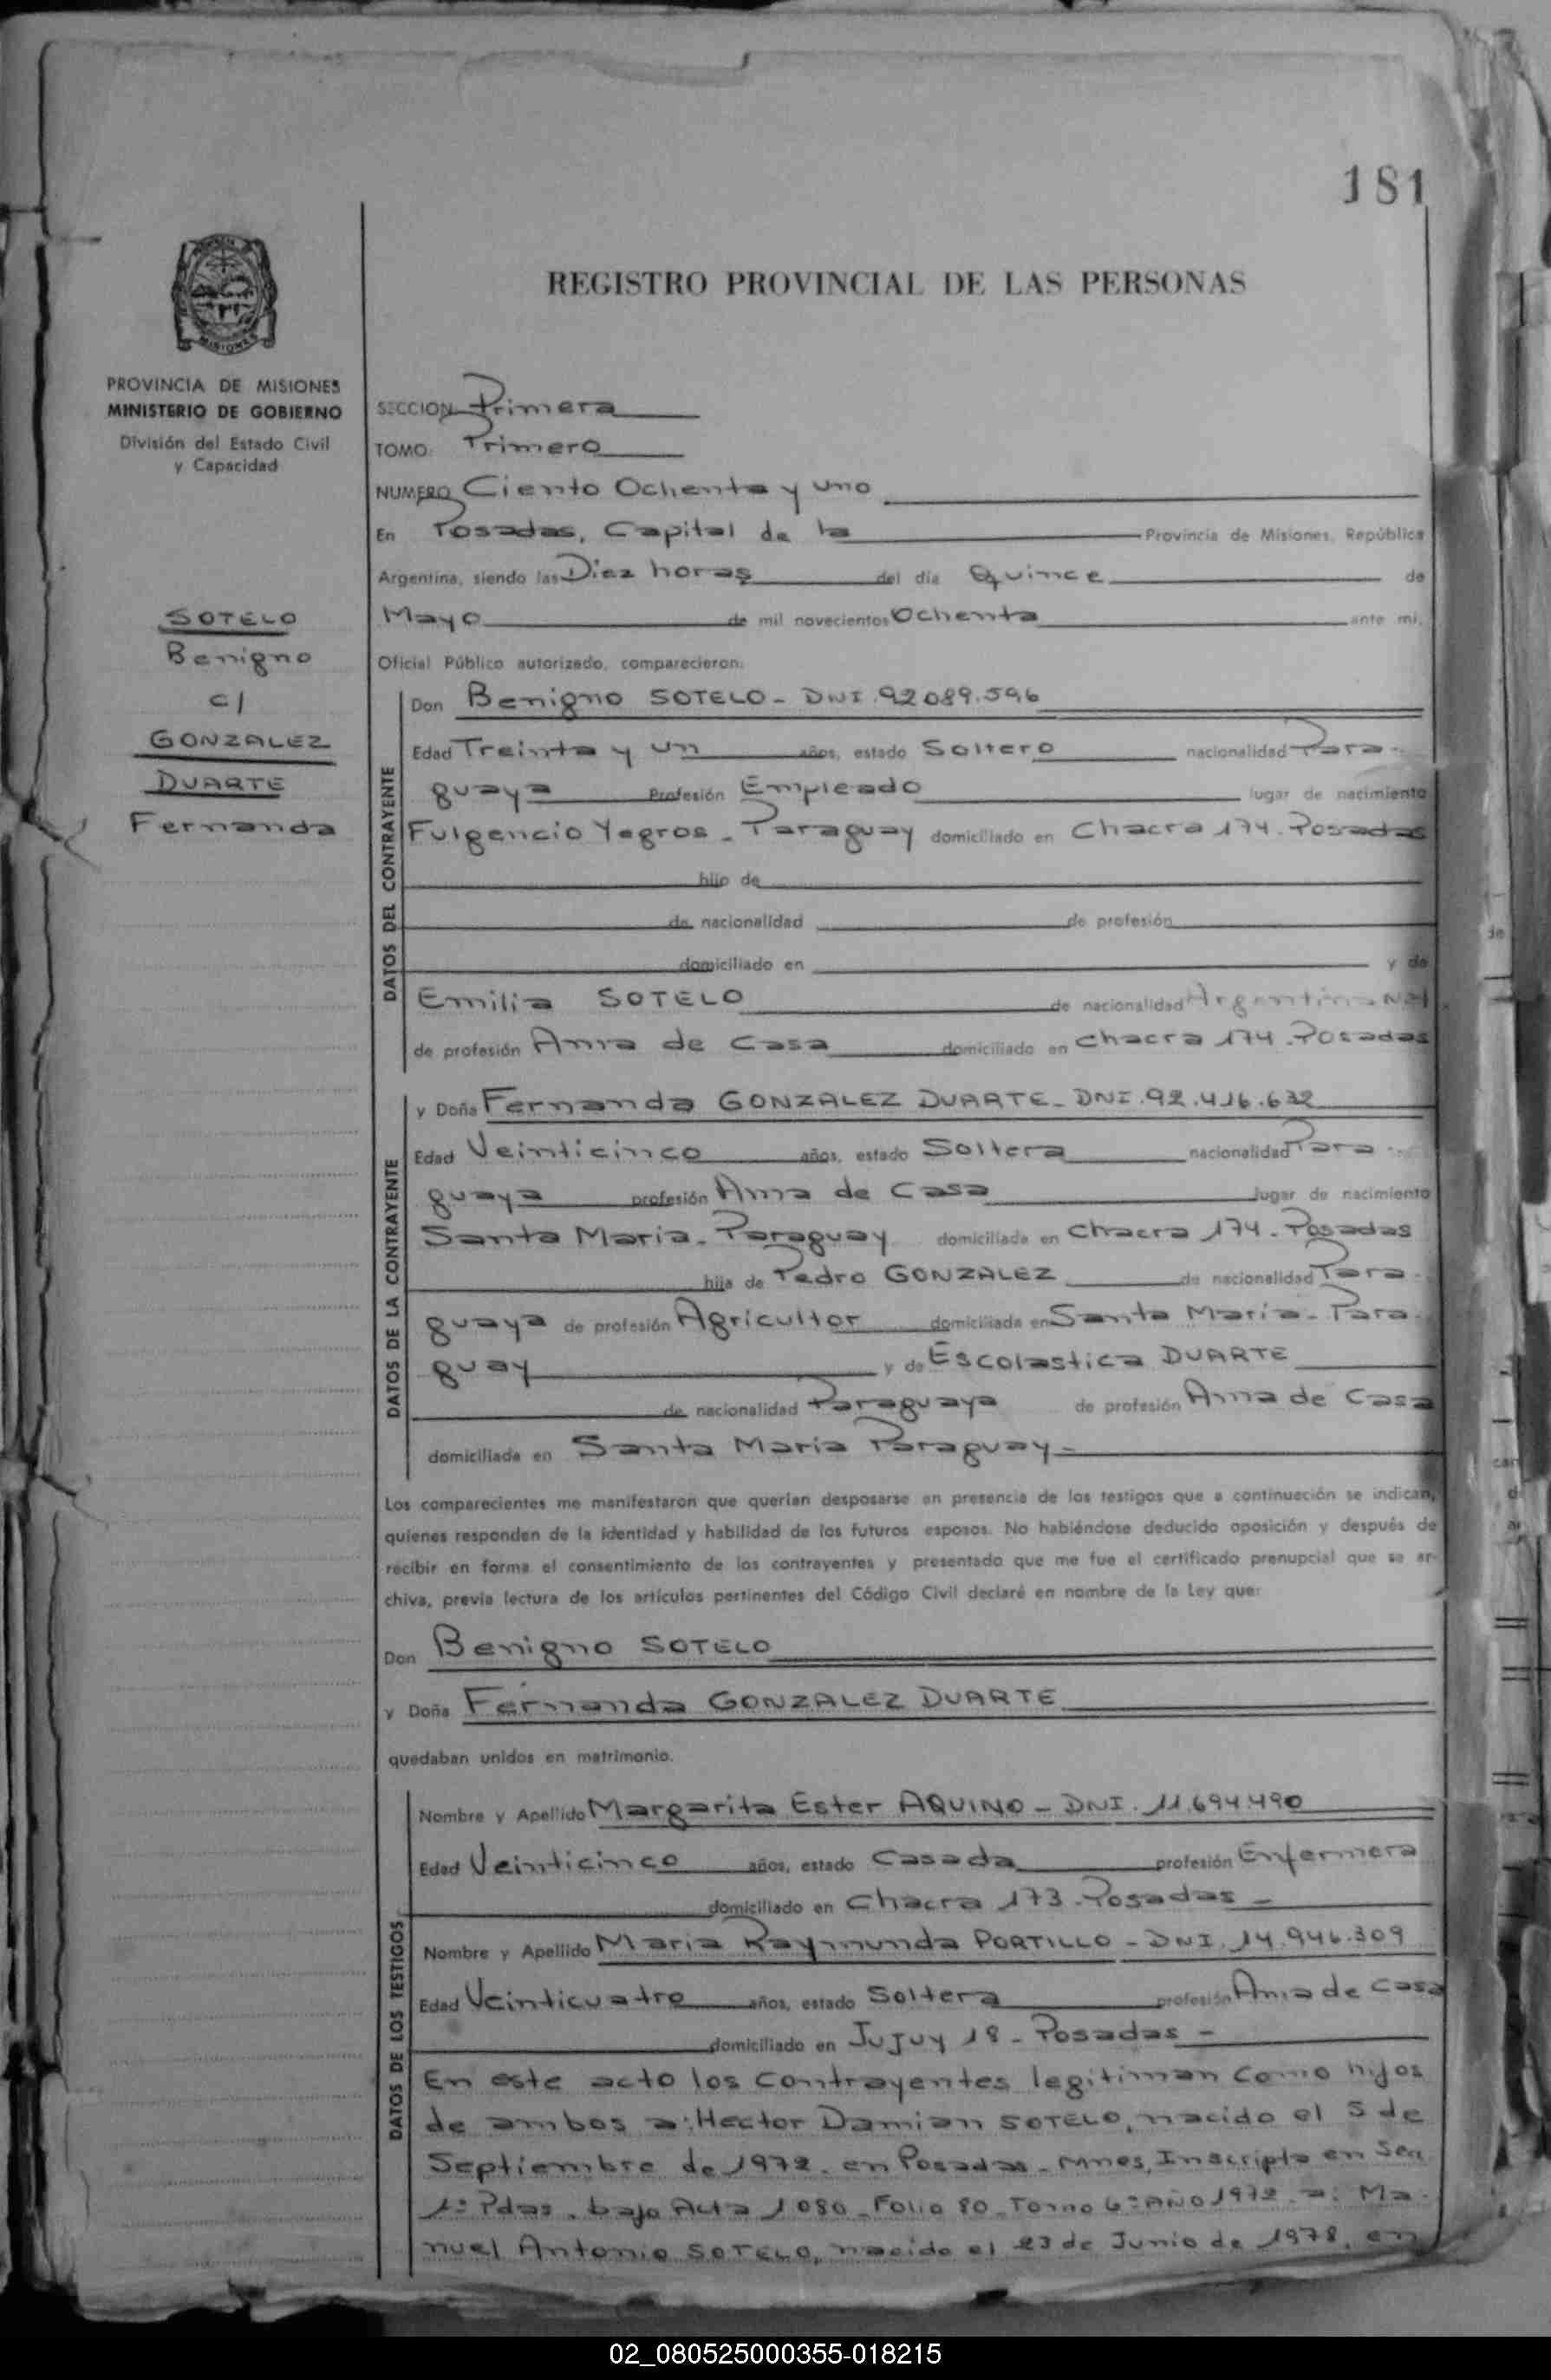 181
REGISTRO PROVINCIAL DE LAS PERSONAS
MISIONES
PROVINCIA DE MISIONES
MINISTERIO DE GOBIERNO
División del Estado Civil
y Capacidad
SOTELO
Benigno
c/
GONZALEZ
DUARTE
Fernanda
SECCION Primera
TOMO: Primero
NUMERO Ciento Ochenta y uno
En Posadas, Capital de la Provincia de Misiones, República
Argentina, siendo las Diez horas del día Quince de
Mayo de mil novecientos Ochenta ante mí,
Oficial Público autorizado, comparecieron:
DATOS DEL CONTRAYENTE
Don Benigno SOTELO - DNI. 92089.596
Edad Treinta y un años, estado Soltero nacionalidad Para-
guaya Profesión Empleado lugar de nacimiento
Fulgencio Yegros - Paraguay domiciliado en Chacra 174. Posadas
hijo de
de nacionalidad de profesión
domiciliado en y de
Emilia SOTELO de nacionalidad Argentina Nat.
de profesión Ama de Casa domiciliado en Chacra 174. Posadas
DATOS DE LA CONTRAYENTE
y Doña Fernanda GONZALEZ DUARTE - DNI. 92.416.632
Edad Veinticinco años, estado Soltera nacionalidad Para-
guaya profesión Ama de Casa lugar de nacimiento
Santa Maria - Paraguay domiciliada en Chacra 174. Posadas
hija de Pedro GONZALEZ de nacionalidad Para-
guaya de profesión Agricultor domiciliada en Santa Maria - Para-
guay y de Escolastica DUARTE
de nacionalidad Paraguaya de profesión Ama de Casa
domiciliada en Santa Maria Paraguay -
Los comparecientes me manifestaron que querían desposarse en presencia de los testigos que a continuación se indican,
quienes responden de la identidad y habilidad de los futuros esposos. No habiéndose deducido oposición y después de
recibir en forma el consentimiento de los contrayentes y presentado que me fue el certificado prenupcial que se ar-
chiva, previa lectura de los artículos pertinentes del Código Civil declaré en nombre de la Ley que:
Don Benigno SOTELO
y Doña Fernanda GONZALEZ DUARTE
quedaban unidos en matrimonio.
DATOS DE LOS TESTIGOS
Nombre y Apellido Margarita Ester AQUINO - DNI. 11.694.490
Edad Veinticinco años, estado Casada profesión Enfermera
domiciliado en Chacra 173 - Posadas -
Nombre y Apellido Maria Raymunda PORTILLO - DNI. 14.946.309
Edad Veinticuatro años, estado Soltera profesión Ama de Casa
domiciliado en Jujuy 18 - Posadas -
En este acto los contrayentes legitiman como hijos
de ambos a: Hector Damian SOTELO, nacido el 5 de
Septiembre de 1972. en Posadas - Mnes, Inscripto en Sec.
1ª Pdas. bajo Acta 1080 - Folio 80 - Tomo 6º Año 1972. a: Ma-
nuel Antonio SOTELO, nacido el 23 de Junio de 1978, en
02_080525000355-018215